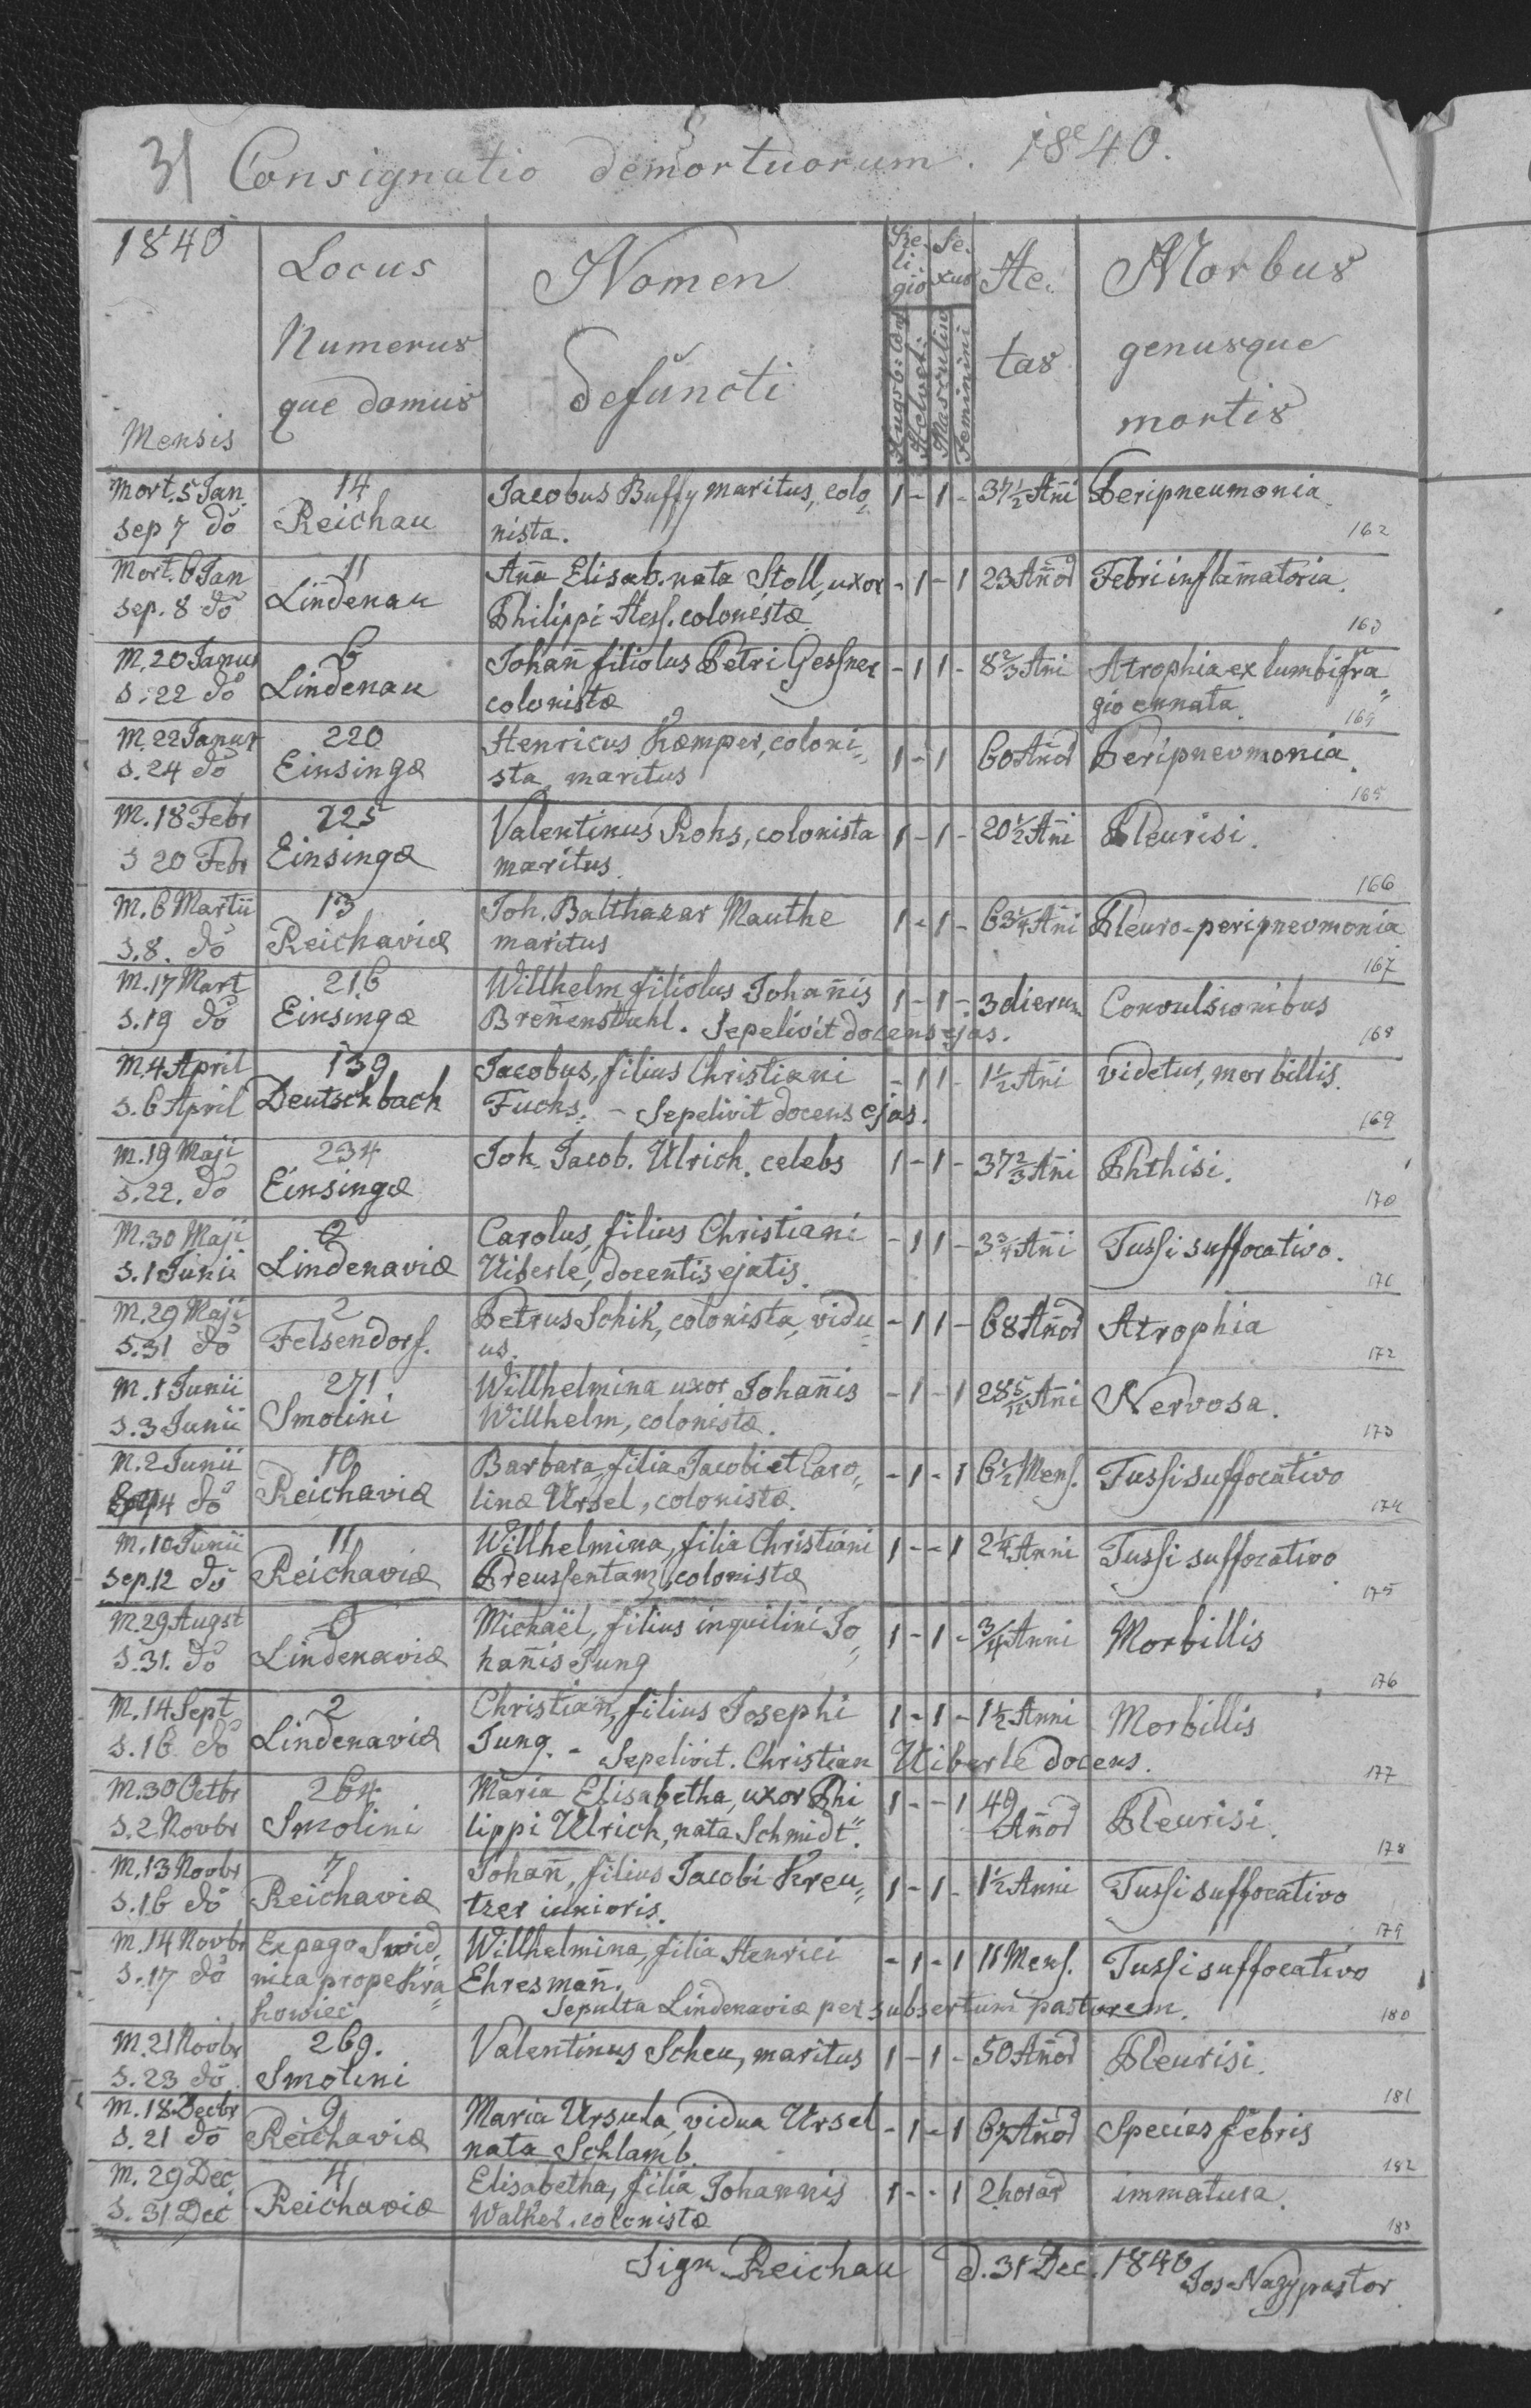 31 Consignatio demortuorum. 1840.
1840 Mensis
Locus Numerus que domus
Nomen defuncti
Re- li gio
Se- xus
Augsb: Conf
Helveti.
Masculini
Feminini
Ae- tas
Morbus genusque mortis
Mort. 5 Jan 14 Jacobus Buffy maritus, colo, 1 - 1 - 37 1/2 Añi Peripneumonia
sep 7 do Reichau nista. 162
Mort. 6 Jan 11 Aña Elisab. nata Stoll, uxor - 1 - 1 23 Añod Febri inflam̃atoria.
sep. 8 do Lindenau Philippi Hess. colonistæ 163
M. 20 Janur 6 Johañ filiolus Petri Gessner - 1 1 - 8 2/3 Añi Atrophia ex lumbifra„
s. 22 do Lindenau colonistæ gio ennata. 164
M. 22 Janur 220 Henricus Kæmper, coloni„ 1 - 1 60 Añod Peripnevmonia.
s. 24 do Einsingæ sta, maritus 165
M. 18 Febr 225 Valentinus Rohs, colonista 1 - 1 - 20 1/2 Añi Pleurisi.
s 20 Febr Einsingæ maritus. 166
M. 6 Martii 13 Joh. Balthazar Mauthe 1 - 1 - 63 1/4 Añi Pleuro-peripnevmonia
s. 8. do Reichaviæ maritus 167
M. 17 Mart 216 Willhelm filiolus Johañis 1 - 1 - 3 dierum Convulsionibus
s. 19 do Einsingæ Breñenstuhl. Sepelivit docens ejas. 168
M. 4 April 139 Jacobus, filius Christiani - 1 1 - 1 1/2 Añi videtur, morbillis.
s. 6 April Deutschbach Fuchs. - Sepelivit docens ejas. 169
M. 19 Maji 234 Joh. Jacob. Ulrich. celebs 1 - 1 - 37 2/3 Añi Phthisi.
s. 22. do Einsingæ 170
M. 30 Maji Carolus, filius Christiani - 1 1 - 3 3/4 Añi Tussi suffocativo.
s. 1 Junii Lindenaviæ Uiberle, docentis ejatis. 171
M. 29 Maji 2 Petrus Schik, colonista, vidu - 1 1 - 68 Añod Atrophia
s. 31 do Felsendorf. us. 172
M. 1 Junii 271 Willhelmina uxor Johañis - 1 - 1 28 5/12 Añi Nervosa.
s. 3 Junii Smolini Willhelm, colonistæ. 173
M. 2 Junii 10 Barbara, filia Jacobi et Caro„ - 1 - 1 6 1/2 Mens. Tussi suffocativo
4 do Reichaviæ linæ Ursel, colonistæ. 174
M. 10 Junii 11 Willhelmina, filia Christiani 1 - - 1 2 1/4 Anni Tussi suffocativo
sep. 12 do Reichaviæ Preussentanz, colonistæ 175
M. 29 Augst Michaël, filius inquilini Jo„ 1 - 1 - 3/4 Anni Morbillis
s. 31. do Lindenaviæ hañis Jung 176
M. 14 Sept 2 Christian, filius Josephi 1 - 1 - 1 1/2 Anni Morbillis
s. 16 do Lindenaviæ Jung. - Sepelivit. Christian Uiberle docens. 177
M. 30 Octbr 264 Maria Elisabetha, uxor Phi 1 - - 1 49 Añod Pleurisi.
s. 2 Novbr Smolini lippi Ulrich, nata Schmidt. 178
M. 13 Novbr 7 Johañ, filius Jacobi Kreu„ 1 - 1 - 1 1/2 Anni Tussi suffocativo
s. 16 do Reichaviæ tzer iunioris. 179
M. 14 Novbr Ex pago Swid„ Willhelmina, filia Henrici - 1 - 1 11 Mens. Tussi suffocativo
s. 17 do nica prope Kra„ Ehresmañ.
kowiec Sepulta Lindenaviæ per subsertum pastorem. 180
M. 21 Novbr 269. Valentinus Scheu, maritus 1 - 1 - 50 Añod Pleurisi.
s. 23 do Smolini 181
M. 18 Decbr 9 Maria Ursula, vidua Ursel - 1 - 1 67 Añod Species febris
s. 21 do Reichaviæ nata Schlamb. 182
M. 29 Dec 4 Elisabetha, filia Johannis 1 - - 1 2 horar immatura.
s. 31 Dec Reichaviæ Walker. colonistæ 183
Sign. Reichau d. 31 Dec. 1840 Jos Nagy pastor